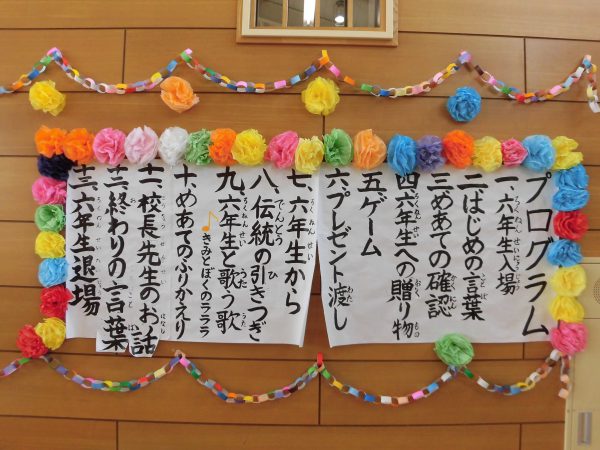 プログラム
一、六年生入場
二、はじめの言葉
三、めあての確認
四、六年生への贈り物
五、ゲーム
六、プレゼント渡し
七、六年生から
八、伝統の引きつぎ
九、六年生と歌う歌
♪きみとぼくのラララ
十、めあてのふりかえり
十一、校長先生のお話
十二、終わりの言葉
十三、六年生退場